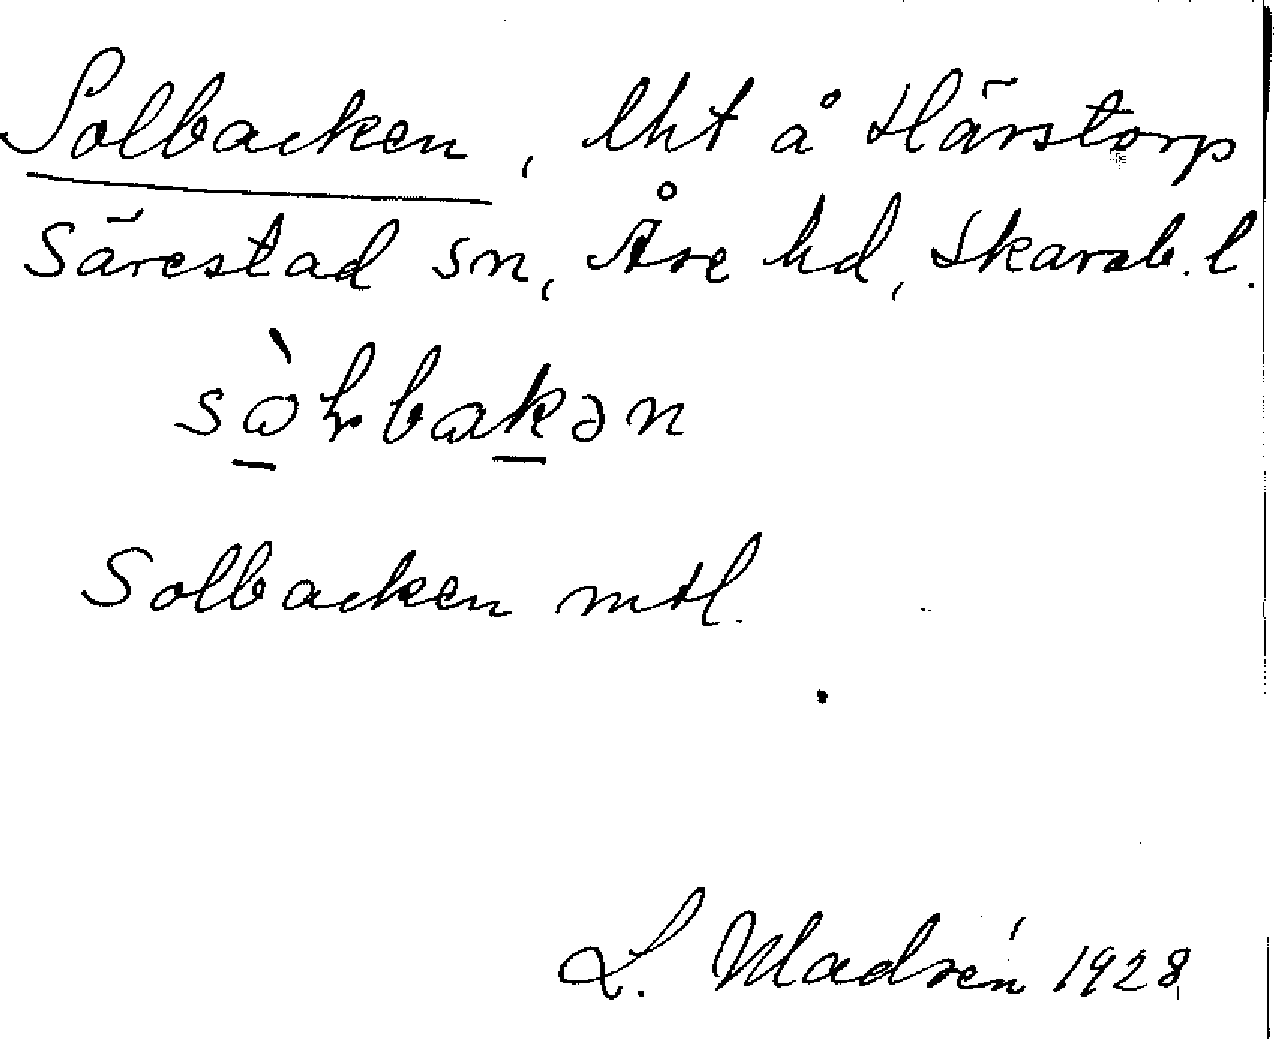 Solbacken, lht å Härstorp
Särestad sn, Åse hd, Skarab. l.
Solbacken mtl.
L. Madrén 1928